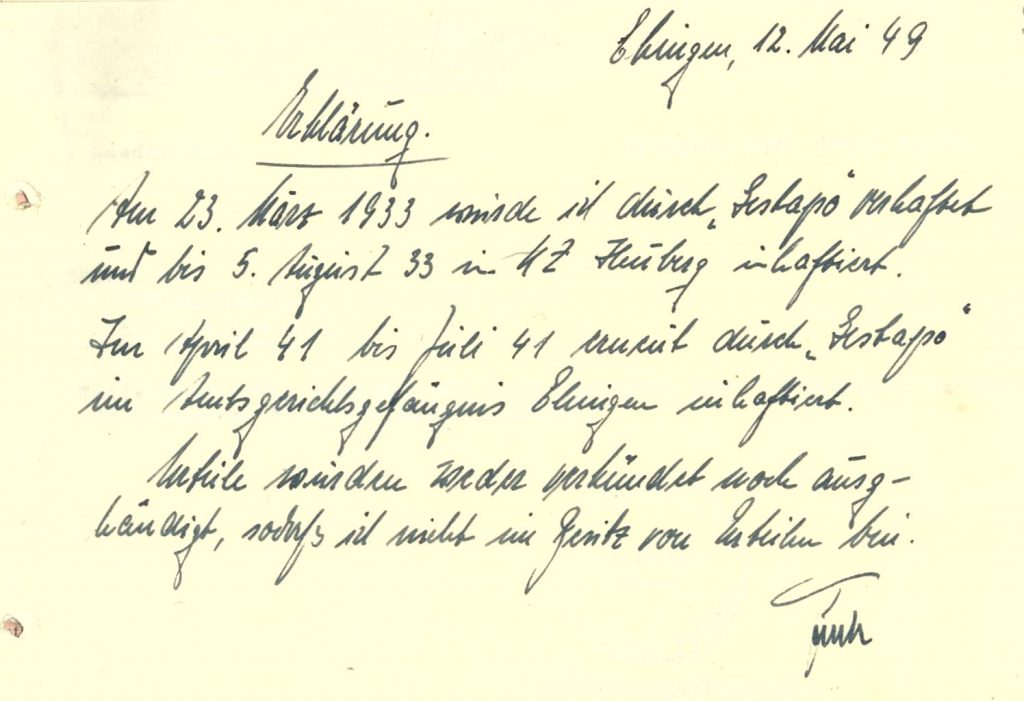 Ehingen, 12. Mai 49
Erklärung.
Am 23. März 1933 wurde ich durch „Gestapo" verhaftet
und bis 5. August 33 in KZ Heuberg inhaftiert.
Im April 41 bis Juli 41 erneut durch „Gestapo"
im Amtsgerichtsgefängnis Ehingen inhaftiert.
Urteile wurden weder verkündet noch ausg-
händigt, sodaß ich nicht im Besitz von Urteilen bin.